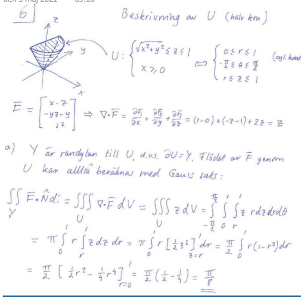 6) Beskrivning av U (halv kon)
z
y
x
U: { √(x²+y²) ≤ z ≤ 1
x ≥ 0
⟺ { 0 ≤ r ≤ 1
-π/2 ≤ θ ≤ π/2
r ≤ z ≤ 1
(cyl. koord
F̄ = [ x-z
-yz-y
z² ] ⇒ ∇·F̄ = ∂F₁/∂x + ∂F₂/∂y + ∂F₃/∂z = (1-0)+(-z-1)+2z = z
a) Y är randytan till U, d.v.s. ∂U=Y. Flödet av F̄ genom
U kan alltså beräknas med Gauss sats:
∬_Y F̄·N̂ dS = ∭_U ∇·F̄ dV = ∭_U z dV = ∫_{-π/2}^{π/2} ∫_0^1 ∫_r^1 z r dz dr dθ
= π ∫_0^1 r ∫_r^1 z dz dr = π ∫_0^1 r [½z²]_{z=r}^1 dr = π/2 ∫_0^1 r(1-r²)dr
= π/2 [½r² - ¼r⁴]_{r=0}^1 = π/2 (½-¼) = π/8